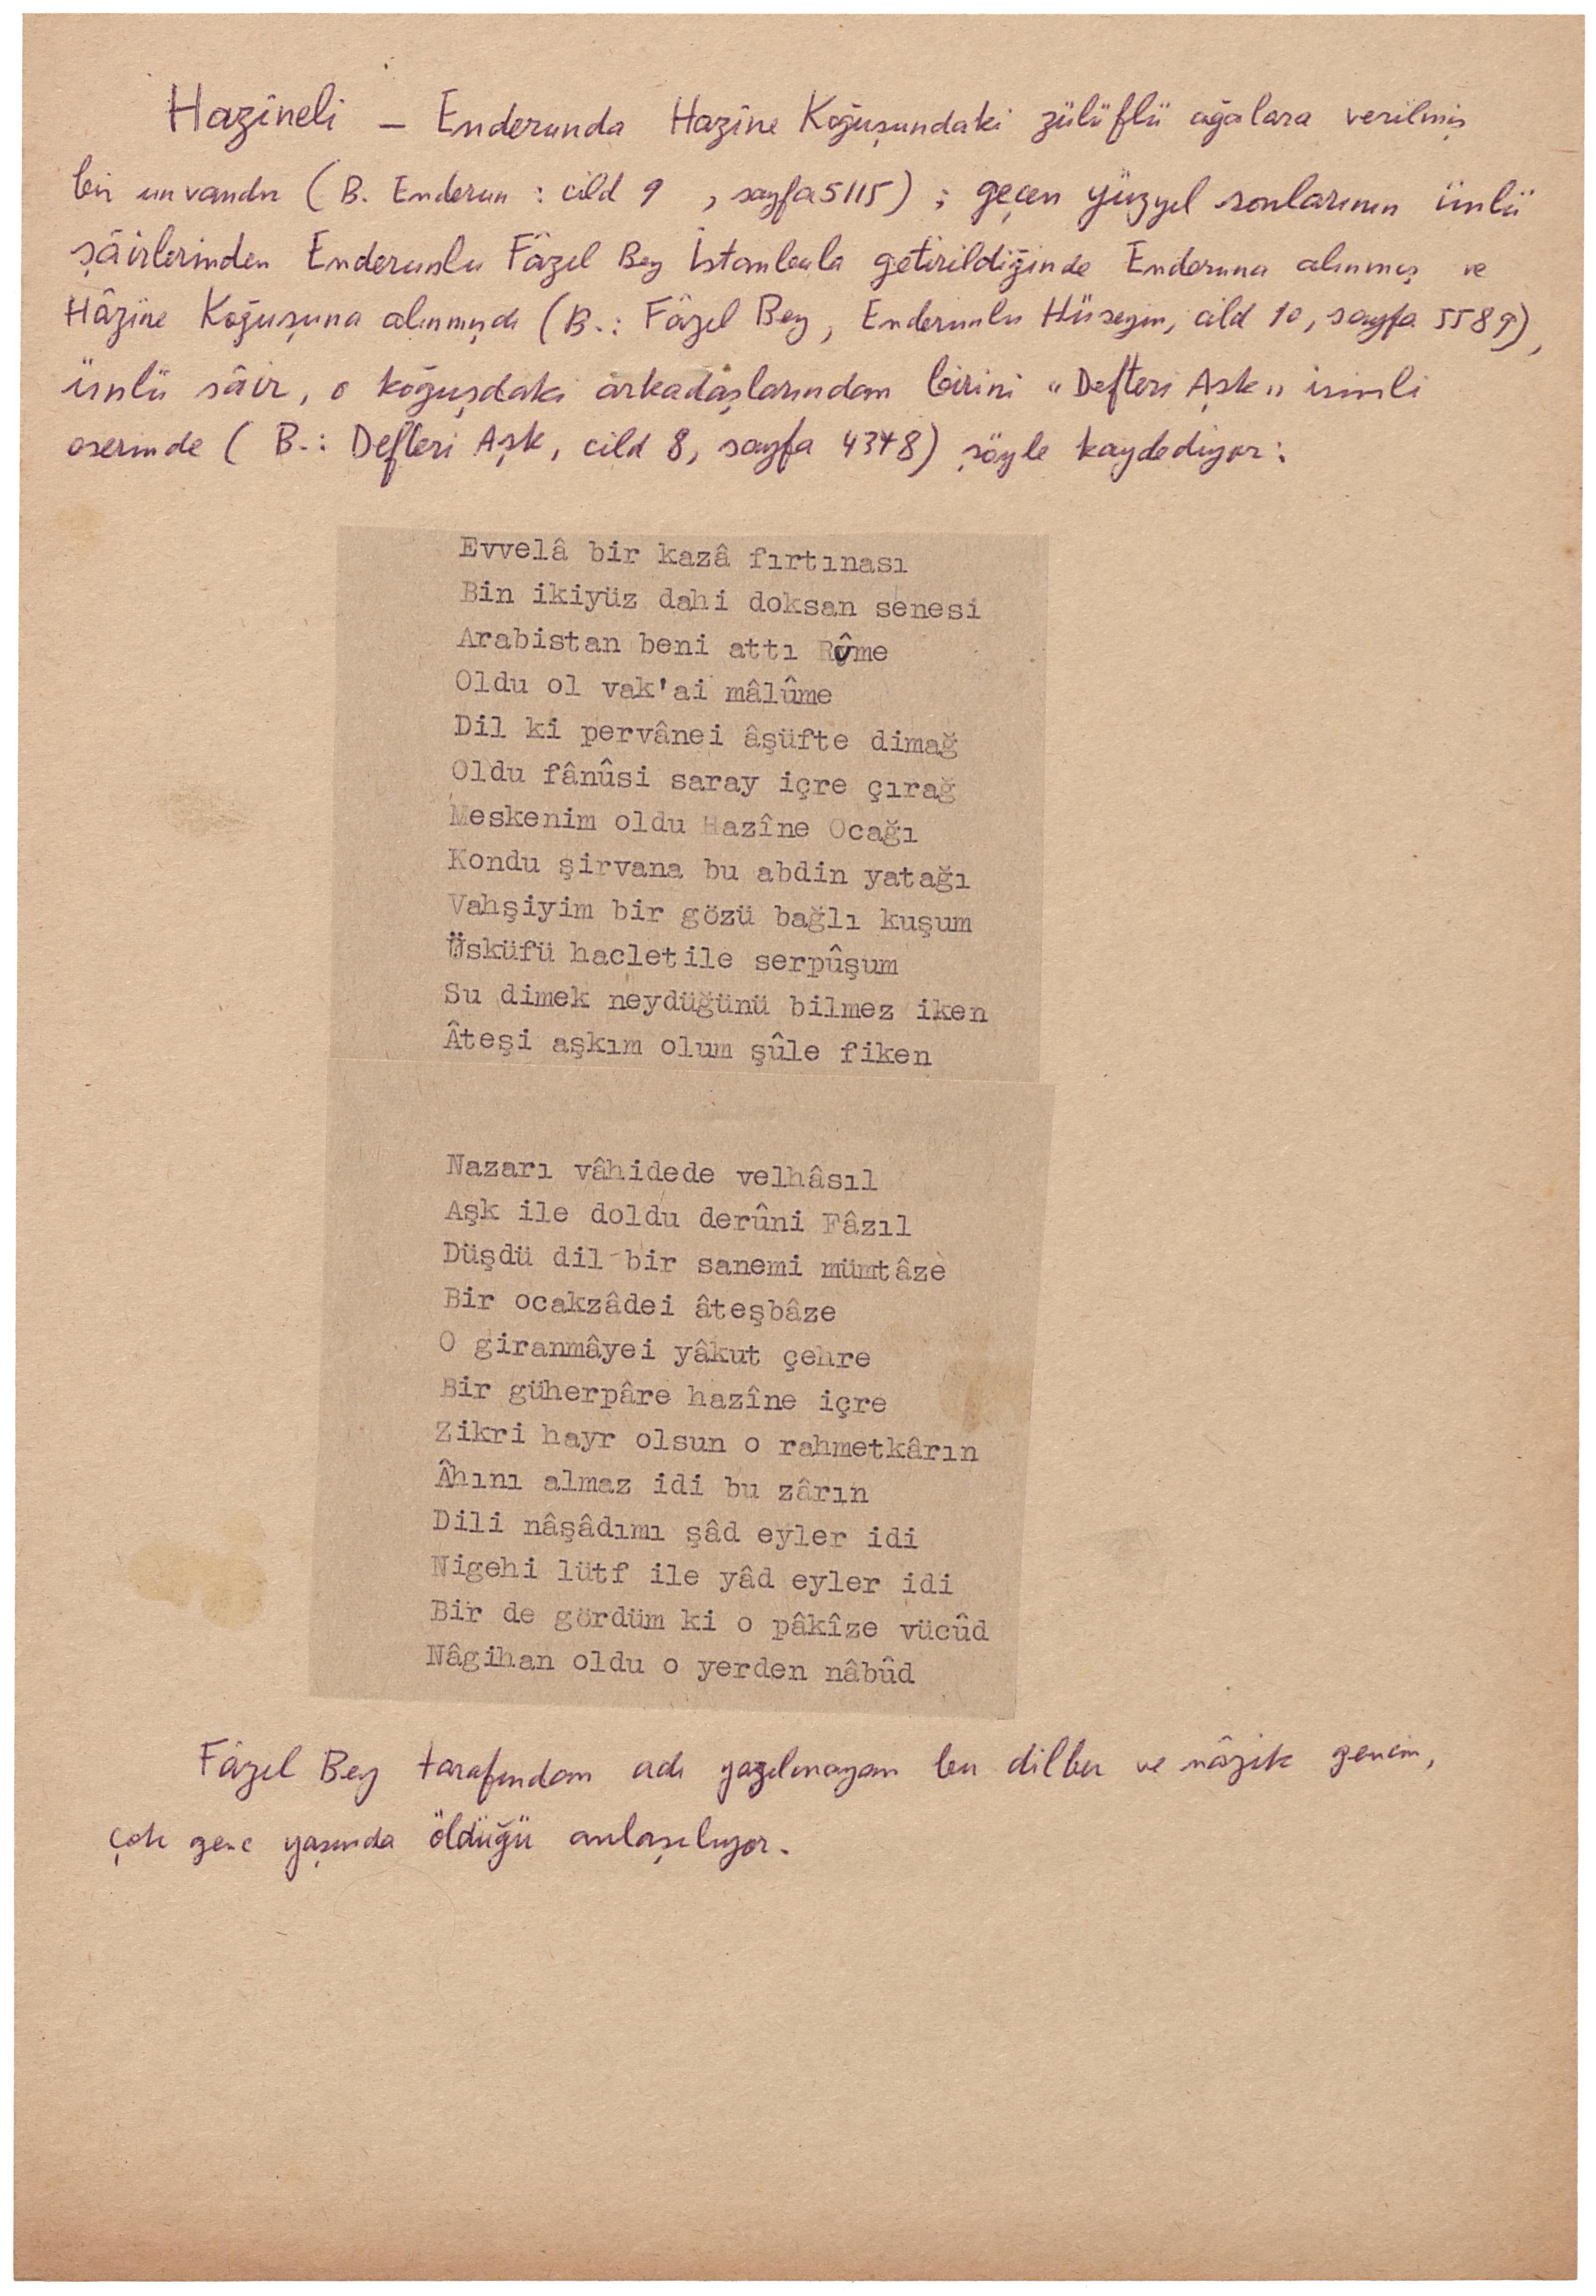 Hazîneli – Enderunda Hazîne Koğuşundaki zülüflü ağalara verilmiş
bir unvandır ( B. Enderun : cild 9 , sayfa 5115) ; geçen yüzyıl sonlarının ünlü
şâirlerinden Enderunlu Fâzıl Bey İstanbula getirildiğinde Enderuna alınmış ve
Hâzine Koğuşuna alınmışdı (B.: Fâzıl Bey, Enderunlu Hüseyin, cild 10, sayfa 5589),
ünlü şâir, o koğuşdaki arkadaşlarından birini "Defteri Aşk" isimli
eserinde ( B.: Defteri Aşk, cild 8, sayfa 4348) şöyle kaydediyor:
Evvelâ bir kazâ fırtınası
Bin ikiyüz dahi doksan senesi
Arabistan beni attı Rûme
Oldu ol vak'ai mâlûme
Dil ki pervânei âşüfte dimağ
Oldu fânûsi saray içre çırağ
Meskenim oldu Hazîne Ocağı
Kondu şirvana bu abdin yatağı
Vahşiyim bir gözü bağlı kuşum
Üsküfü hacletile serpûşum
Su dimek neydüğünü bilmez iken
Âteşi aşkım olum şûle fiken
Nazarı vâhidede velhâsıl
Aşk ile doldu derûni Fâzıl
Düşdü dil bir sanemi mümtâze
Bir ocakzâdei âteşbâze
O giranmâyei yâkut çehre
Bir güherpâre hazîne içre
Zikri hayr olsun o rahmetkârın
Âhını almaz idi bu zârın
Dili nâşâdımı şâd eyler idi
Nigehi lütf ile yâd eyler idi
Bir de gördüm ki o pâkîze vücûd
Nâgihan oldu o yerden nâbûd
Fâzıl Bey tarafından adı yazılmayan bu dilber ve nâzik gencin,
çok genc yaşında öldüğü anlaşılıyor.